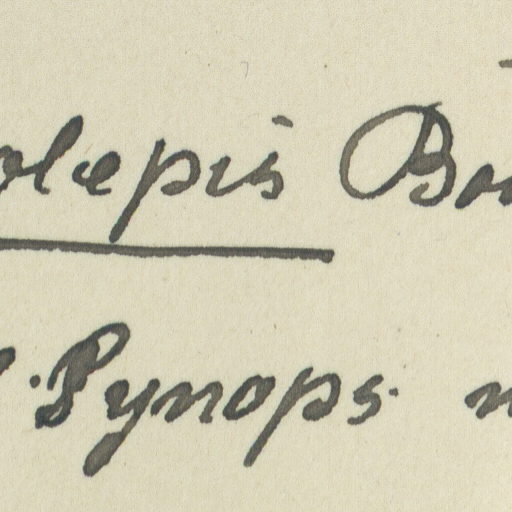 olepis Bo
Synops. n